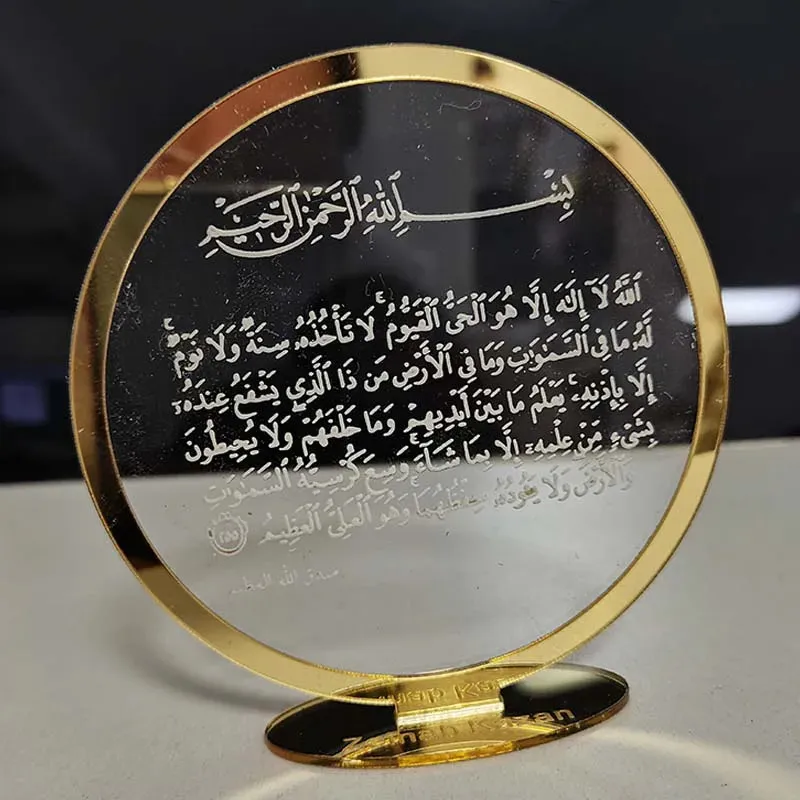 بِسْمِ ٱللَّهِ ٱلرَّحْمَٰنِ ٱلرَّحِيمِ
ٱللَّهُ لَآ إِلَٰهَ إِلَّا هُوَ ٱلْحَىُّ ٱلْقَيُّومُ ۚ لَا تَأْخُذُهُۥ سِنَةٌ وَلَا نَوْمٌ ۚ
لَّهُۥ مَا فِى ٱلسَّمَٰوَٰتِ وَمَا فِى ٱلْأَرْضِ مَن ذَا ٱلَّذِى يَشْفَعُ عِندَهُۥٓ
إِلَّا بِإِذْنِهِۦ ۚ يَعْلَمُ مَا بَيْنَ أَيْدِيهِمْ وَمَا خَلْفَهُمْ ۖ وَلَا يُحِيطُونَ
بِشَىْءٍ مِّنْ عِلْمِهِۦٓ إِلَّا بِمَا شَآءَ ۚ وَسِعَ كُرْسِيُّهُ ٱلسَّمَٰوَٰتِ
وَٱلْأَرْضَ ۖ وَلَا يَـُٔودُهُۥ حِفْظُهُمَا ۚ وَهُوَ ٱلْعَلِىُّ ٱلْعَظِيمُ ٢٥٥
صدق الله العظيم